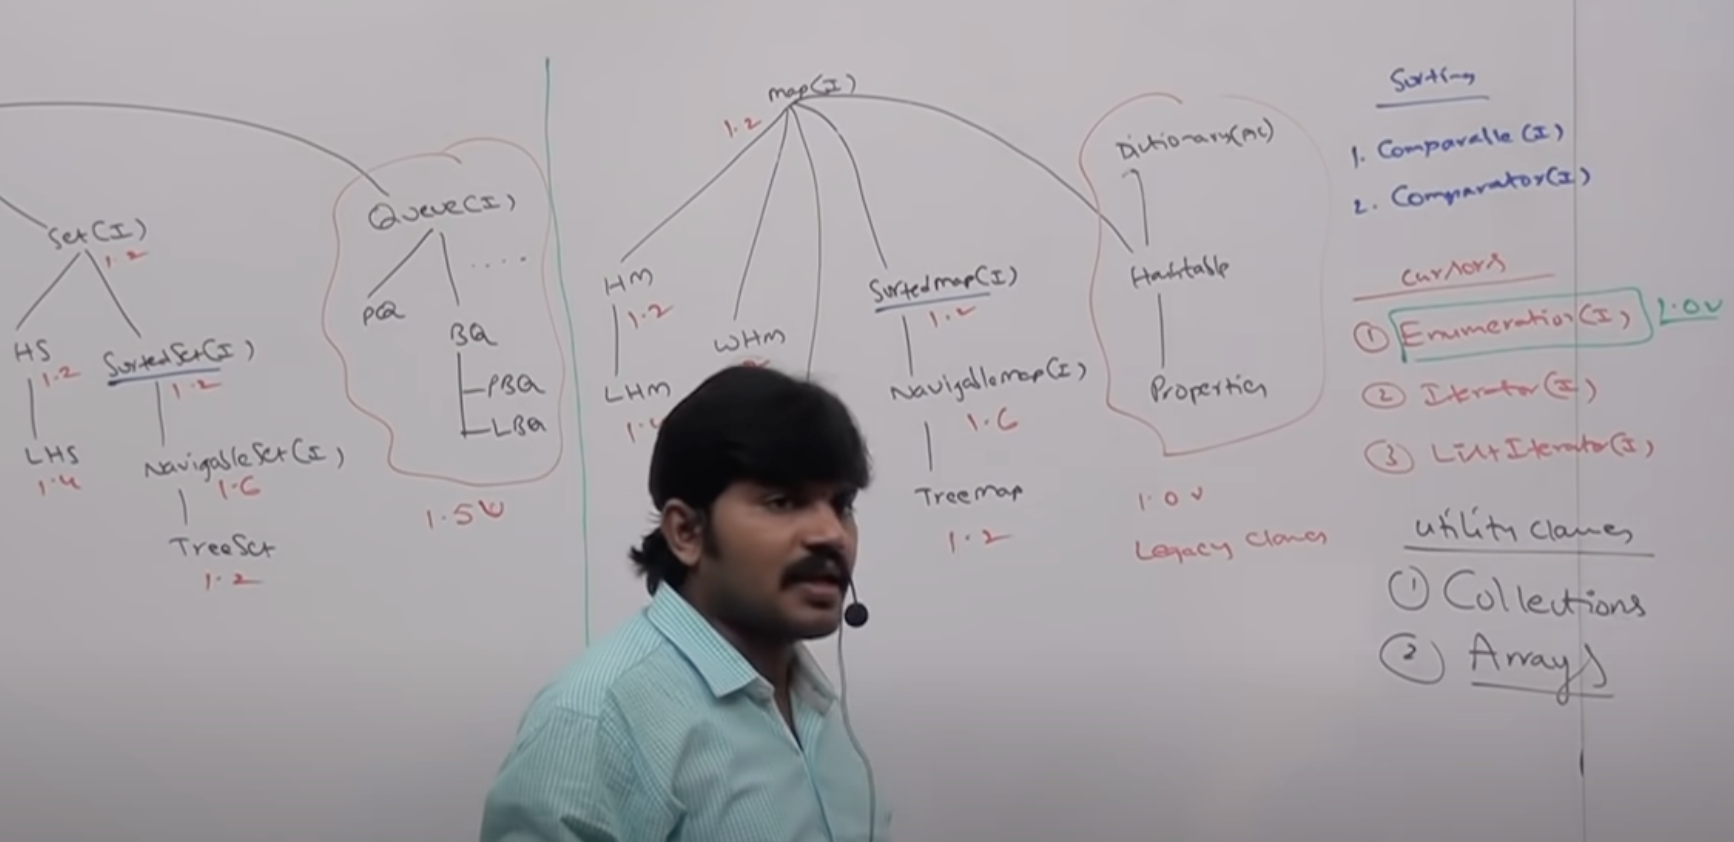 Set(I)
1.2
HS
1.2
LHS
1.4
SortedSet(I)
1.2
NavigableSet(I)
1.6
TreeSet
1.2
Queue(I)
PQ
....
BQ
PBQ
LBQ
1.5V
map(I)
1.2
HM
1.2
LHM
WHM
Sortedmap(I)
1.2
Navigablemap(I)
1.6
Treemap
1.2
Dictionary(AC)
Hashtable
Properties
1.0 V
Legacy Classes
Sorting
1. Comparable (I)
2. Comparator(I)
Cursors
① Enumeration(I) 1.0V
② Iterator(I)
③ ListIterator(I)
utility classes
① Collections
② Arrays